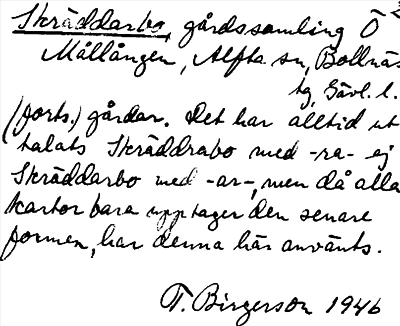 Skräddarbo, gårdssamling Ö 2
Mållången, Alfta sn, Bollnäs
tg, Gävl. l.
(forts.) gårdar. Det har alltid ut
talats Skräddrabo med -ra- ej
Skräddarbo med -ar-, men då alla
kartor bara upptager den senare
formen, har denna här använts.
T. Birgerson 1946